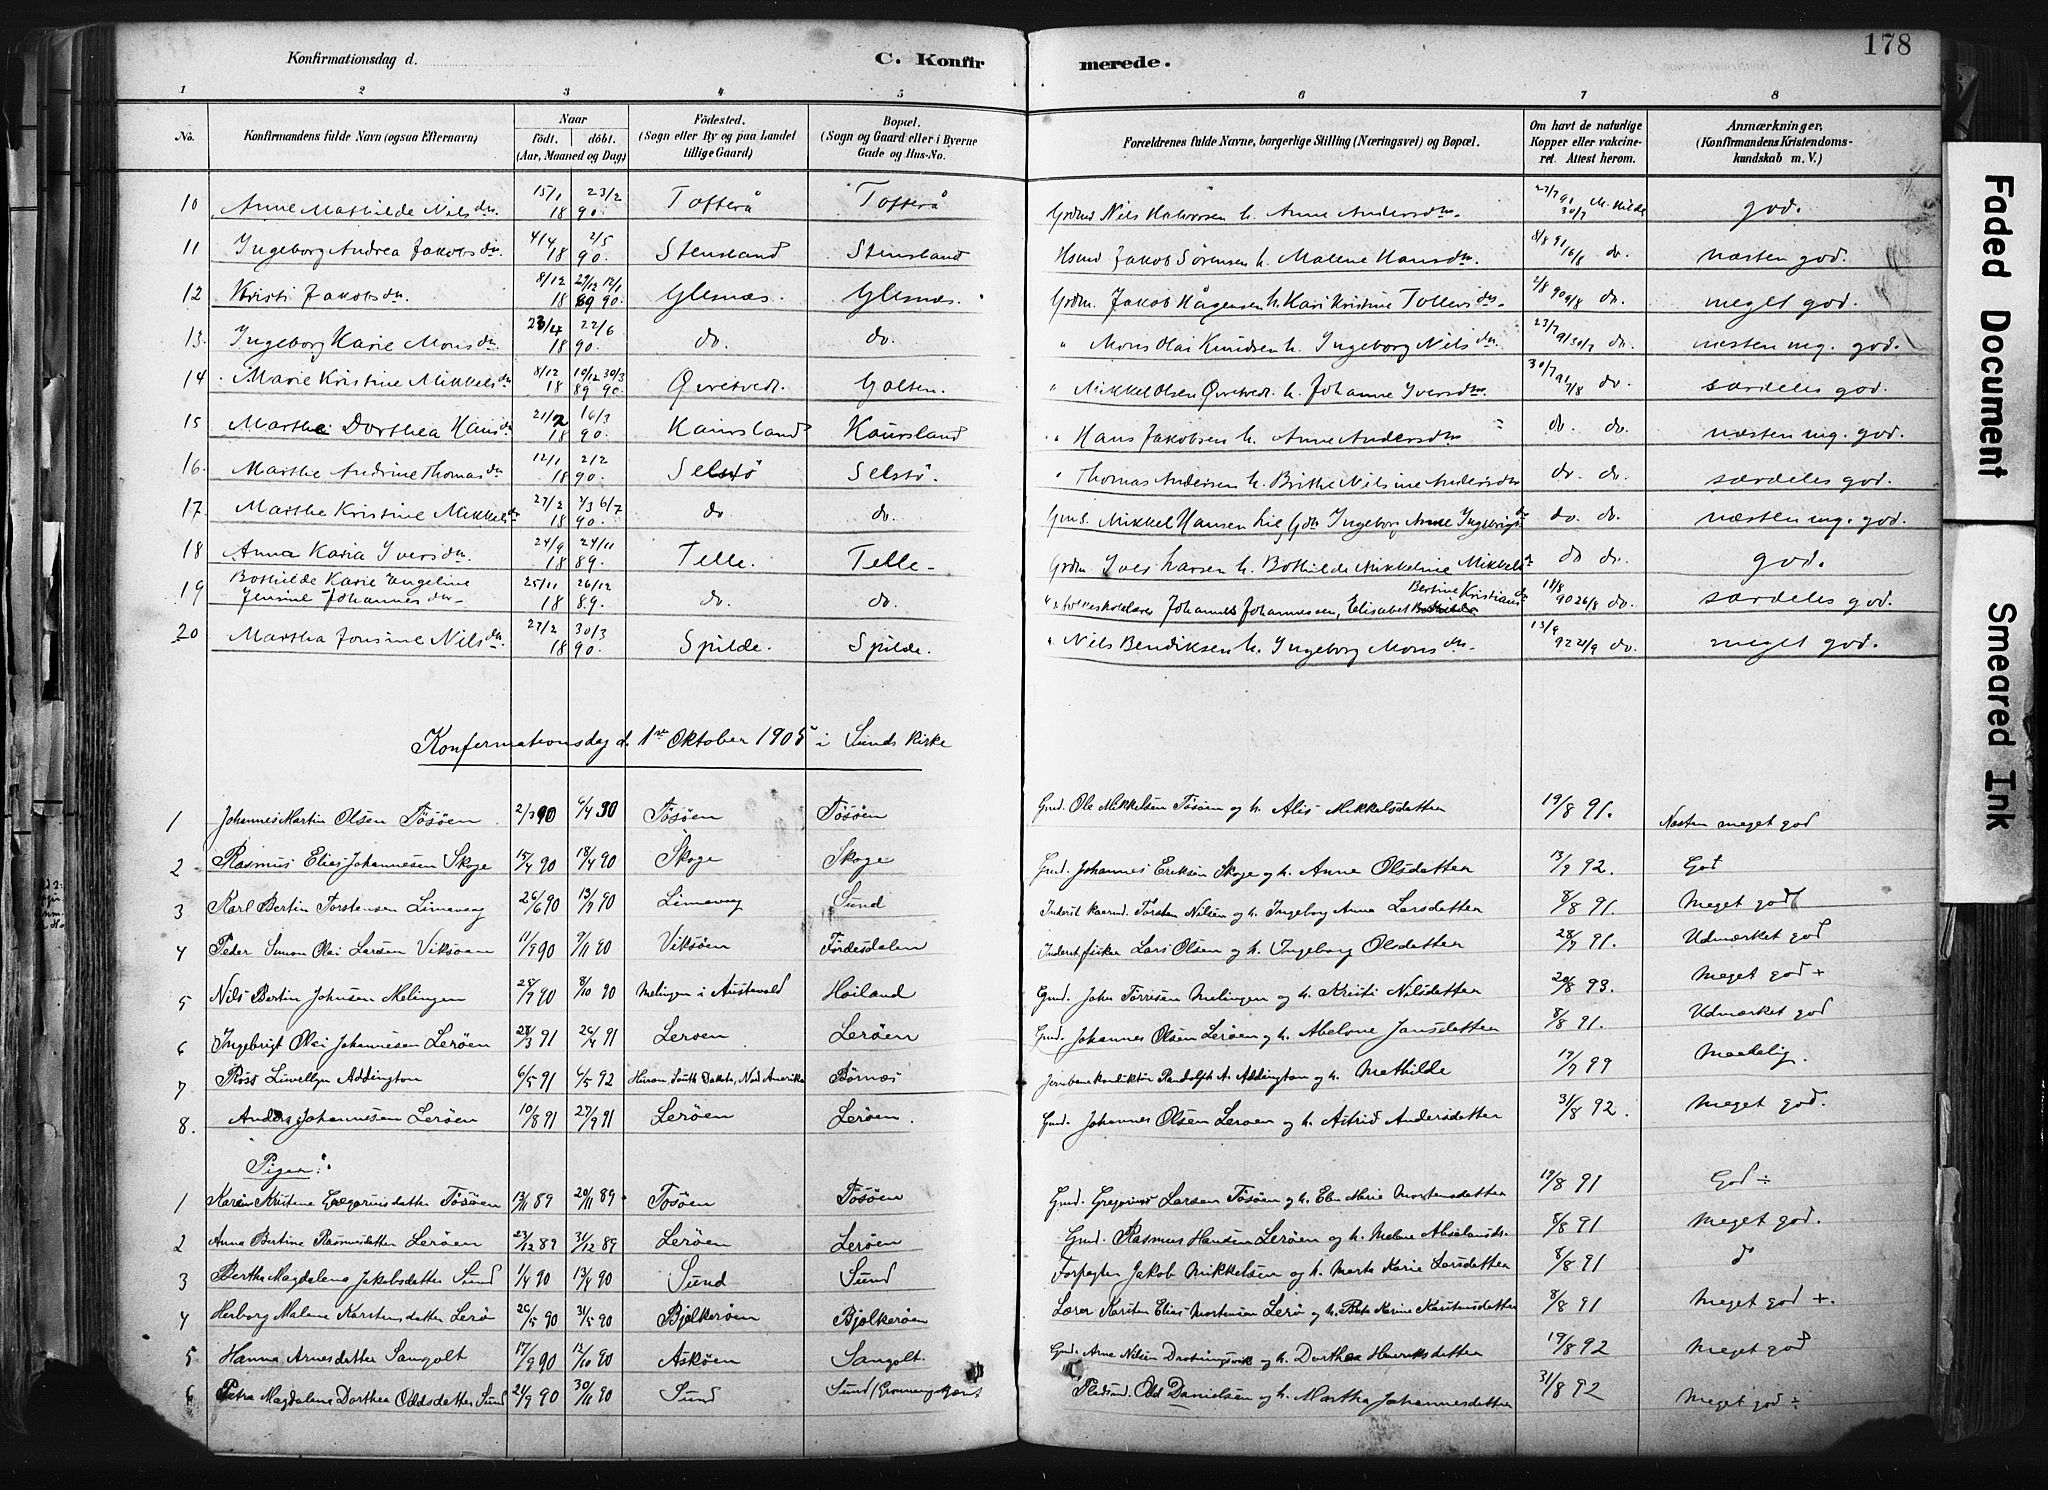 178
Konfirmationsdag d. C. Konfirmerede.
1 2 3 4 5 6 7 8
No. Konfirmandens fulde Navn (ogsaa Efternavn) Naar født. døbt. (Aar, Maaned og Dag) Fødested. (Sogn eller By og paa Landet tillige Gaard) Bopæl. (Sogn og Gaard eller i Byerne Gade og Hus-No. Forældrenes fulde Navne, borgerlige Stilling (Næringsvei) og Bopæl. Om havt de naturlige Kopper eller vakcineret. Attest herom. Anmærkninger. (Konfirmandens Kristendomskundskab m. V.)
10 Anne Mathilde Nilsdn. 15/1 23/2 1890. Tofterå Tofterå Grdmd Nils Halvorsen h. Anne Andersdn. 27/7 91 30/7 M. Hilde god.
11 Ingeborg Andrea Jakobsdn. 4/4 2/5 1890. Stensland Stensland Hsmd Jakob Sørensen h. Malene Hansdn. 8/8 91 16/8 do. næsten god.
12 Kristi Jakobsdn. 8/12 29/12 12/1 1889 90. Glesnæs. Glesnæs. Grdm. Jakob Hågensen h. Kari Kristine Tollevsdn. 2/8 90 9/8 do. meget god.
13. Ingeborg Karie Monsdn. 23/4 22/6 1890. do. do. " Mons Olai Knudsen h. Ingeborg Nilsdn. 23/7 91 30/7 do. næsten mg. god.
14 Marie Kristine Mikkelsdn 8/12 10/12 30/3 1889 90. Qvetvedt. Golten. " Mikkel Olsen Qvetvedt. h. Johanne Iversdn. 30/7 91 7/8 do. særdeles god.
15 Marthe Dorthea Hansdn. 21/2 16/3 1890. Kausland Kausland " Hans Jakobsen h. Anne Andersdn do. do. næsten mg. god.
16. Marthe Andrine Thomasdn 12/1 2/2 1890. Selstö Selstö. " Thomas Andersen h. Brithe Nilsine Andersdn do. do. særdeles god.
17. Marthe Kristine Mikkelsdn 27/2 2/3 6/7 1890. do do. Gms. Mikkel Hansen Lie, Gdtr. Ingeborg Anne Ingebrigtsdn do. do. næsten mg. god.
18 Anna Karia Iversdn. 24/9 24/11 1889. Telle. Telle- Grdm Iver Larsen h. Bothilde Mikkeline Mikkelsdn do do. god.
19 Bothilde Karie Engeline Jensine Johannesdn. 25/11 26/12 1889. do. do. " & folkeskolelærer Johannes Johannessen, Elisabet Bothilda Bertine Kristiansdn 18/8 90 26/8 do. særdeles god.
20 Martha Jonsine Nilsdn. 27/2 30/3 1890. Spilde. Spilde. " Nils Bendiksen h. Ingeborg Monsdn. 13/9 92 21/9 do. meget god.
Konfirmationsdag d. 1ste Oktober 1905 i Sunds Kirke
1 Johannes Martin Olsen Tösöen 2/3 90 6/4 90 Tösöen Tösöen Gmd. Ole Mikkelsen Tösöen og h. Alis Mikkelsdatter 19/8 91. Næsten meget god
2 Rasmus Elias Johannesen Skoge 15/4 90 18/4 90 Skoge Skoge Gmd. Johannes Eriksen Skoge og h. Anna Olsdatter 13/9 92. God
3 Karl Bertin Torstensen Limavaag 26/6 90 13/7 90 Limavaag Sund Inderst baarmd. Torsten Nilsen og h. Ingeborg Anna Larsdatter 8/8 91. Meget god
4 Peder Simon Olai Larsen Viksöen 11/9 90 9/11 90 Viksöen Fördesdalen Inderst fisker Lars Olsen og h. Ingeborg Olsdatter 28/7 91. Udmærket god
5 Nils Bertin Johnsen Melingen 25/7 90 8/10 90 Melingen i Austevold Höiland Gmd. John Torrisen Melingen og h. Kristi Nilsdatter 20/8 93. Meget god +
6 Ingebrigt Olai Johannesen Leröen 28/3 91 26/4 91 Leröen Leröen Gmd. Johannes Olsen Leröen og h. Abelone Jansdatter 8/8 91. Udmærket god
7. Ross Liwellyn Addington 6/5 91 6/5 92 Huron, South Dakota, Nord Amerika Börnæs Jernbanekonduktör Randolph A. Addington og h. Mathilde 17/7 99 Maadelig.
8. Anders Johannesen Leröen 10/8 91 27/9 91 Leröen Leröen. Gmd. Johannes Olsen Leröen og h. Astrid Andersdatter 31/8 92. Meget god.
Piger:
1 Karen Kristine Gregoriusdatter Tösöen 13/11 89 20/11 89. Tösöen Tösöen Gmd. Gregorius Larsen Tösöen og h. Elen Marie Mortensdatter 19/8 91 God ÷
2 Anna Bertine Rasmusdatter Leröen 23/12 89 31/12 89 Leröen Leröen Gmd. Rasmus Hansen Leröen og h. Malene Absalonsd. 8/8 91 Meget god.
3 Bertha Magdalena Jakobsdatter Sund 1/4 90 13/4 90 Sund Sund Forpagter Jakob Mikkelsen og h. Marta Karie Larsdatter 8/8 91 do
4 Herborg Malene Karstensdatter Lerö 26/5 90 31/5 90 Bjelkeröen Bjelkeröen Lærer Karsten Elias Mortensen Lerö og h. Berte Karine Karstensdatter 8/8 91 Meget god +.
5 Hanna Arnesdatter Sangolt 17/9 90 12/10 90 Asköen Sangolt. Gmd. Arne Nilsen Drotningsvik og h. Dorthea Henriksdatter 19/8 92 Meget god
6 Petra Magdalene Dorthea Oddsdatter Sund 21/9 90 30/11 90 Sund Sund Pladsmd. Odd Danielsen og h. Martha Johannesdatter 31/8 92 Meget god ÷
Faded Document
Smeared Ink